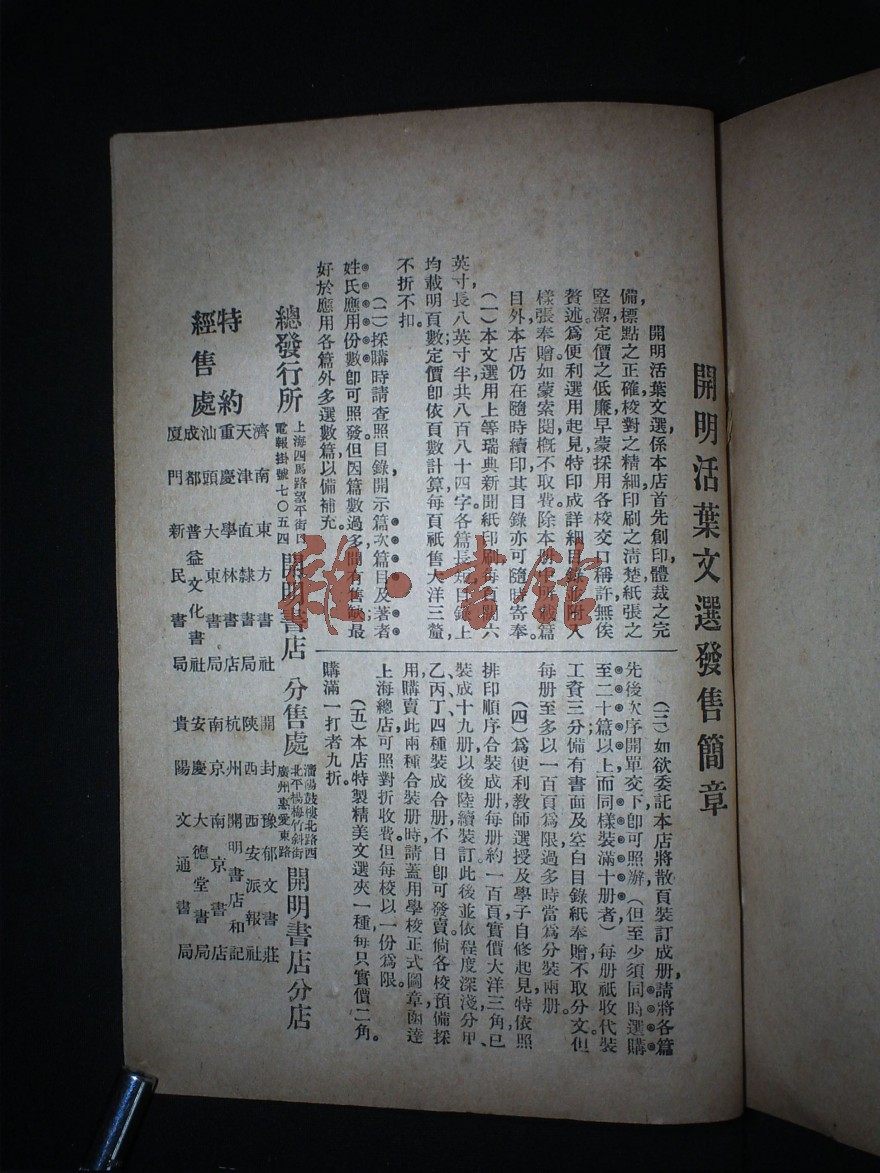 開明活葉文選發售簡章
開明活葉文選係本店首先創印體裁之完
備,標點之正確,校對之精細,印刷之清楚,紙張之
堅潔,定價之低廉,早蒙採用各校交口稱許,無俟
贅述。爲便利選用起見,特印成詳細目錄,並附入
樣張奉贈,如蒙索閱,槪不取費。除本册所載篇
目外,本店仍在隨時續印,其目錄亦可隨時寄奉。
(一)本文選用上等瑞典新聞紙印刷,每頁闊六
英寸,長八英寸半,共八百八十四字,各篇長短目錄上
均載明頁數,定價卽依頁數計算,每頁祇售大洋三釐,
不折不扣。
(二)採購時請查照目錄,開示篇次篇目及著者
姓氏應用份數,卽可照發。但因篇數過多,間有售缺,最
好於應用各篇外多選數篇,以備補充。
(三)如欲委託本店將散頁裝訂成册,請將各篇
先後次序開單交下,卽可照辦,(但至少須同時選購
至二十篇以上,而同樣裝滿十册者)每册祇收代裝
工資三分,備有書面及空白目錄紙奉贈,不取分文。但
每册至多以一百頁爲限,過多時當爲分裝兩册。
(四)爲便利教師選授及學子自修起見,特依照
排印順序合裝成册,每册約一百頁,實價大洋三角,已
裝成十九册,以後陸續裝訂。此後並依程度深淺,分甲、
乙、丙、丁四種,裝成合册,不日卽可發賣。倘各校預備採
用購賣此兩種合裝册時,請蓋用學校正式圖章,函達
上海總店,可照對折收費,但每校以一份爲限。
(五)本店特製精美文選夾一種,每只實價二角。
購滿一打者九折。
總發行所 上海四馬路望平街口 電報掛號七〇五四 開明書店
分售處 瀋陽鼓樓北路西 北平楊梅竹斜街 廣州惠愛東路 開明書店分店
特約經售處
濟南 東方書社
開封 豫郁文書莊
天津 直隸書局
陝西 西安派報社
重慶 學林書店
杭州 開明書店和記
汕頭 大東書局
南京 南京書店
成都 普益文化書社
安慶 大德堂書局
廈門 新民書局
貴陽 文通書局
雜·書館